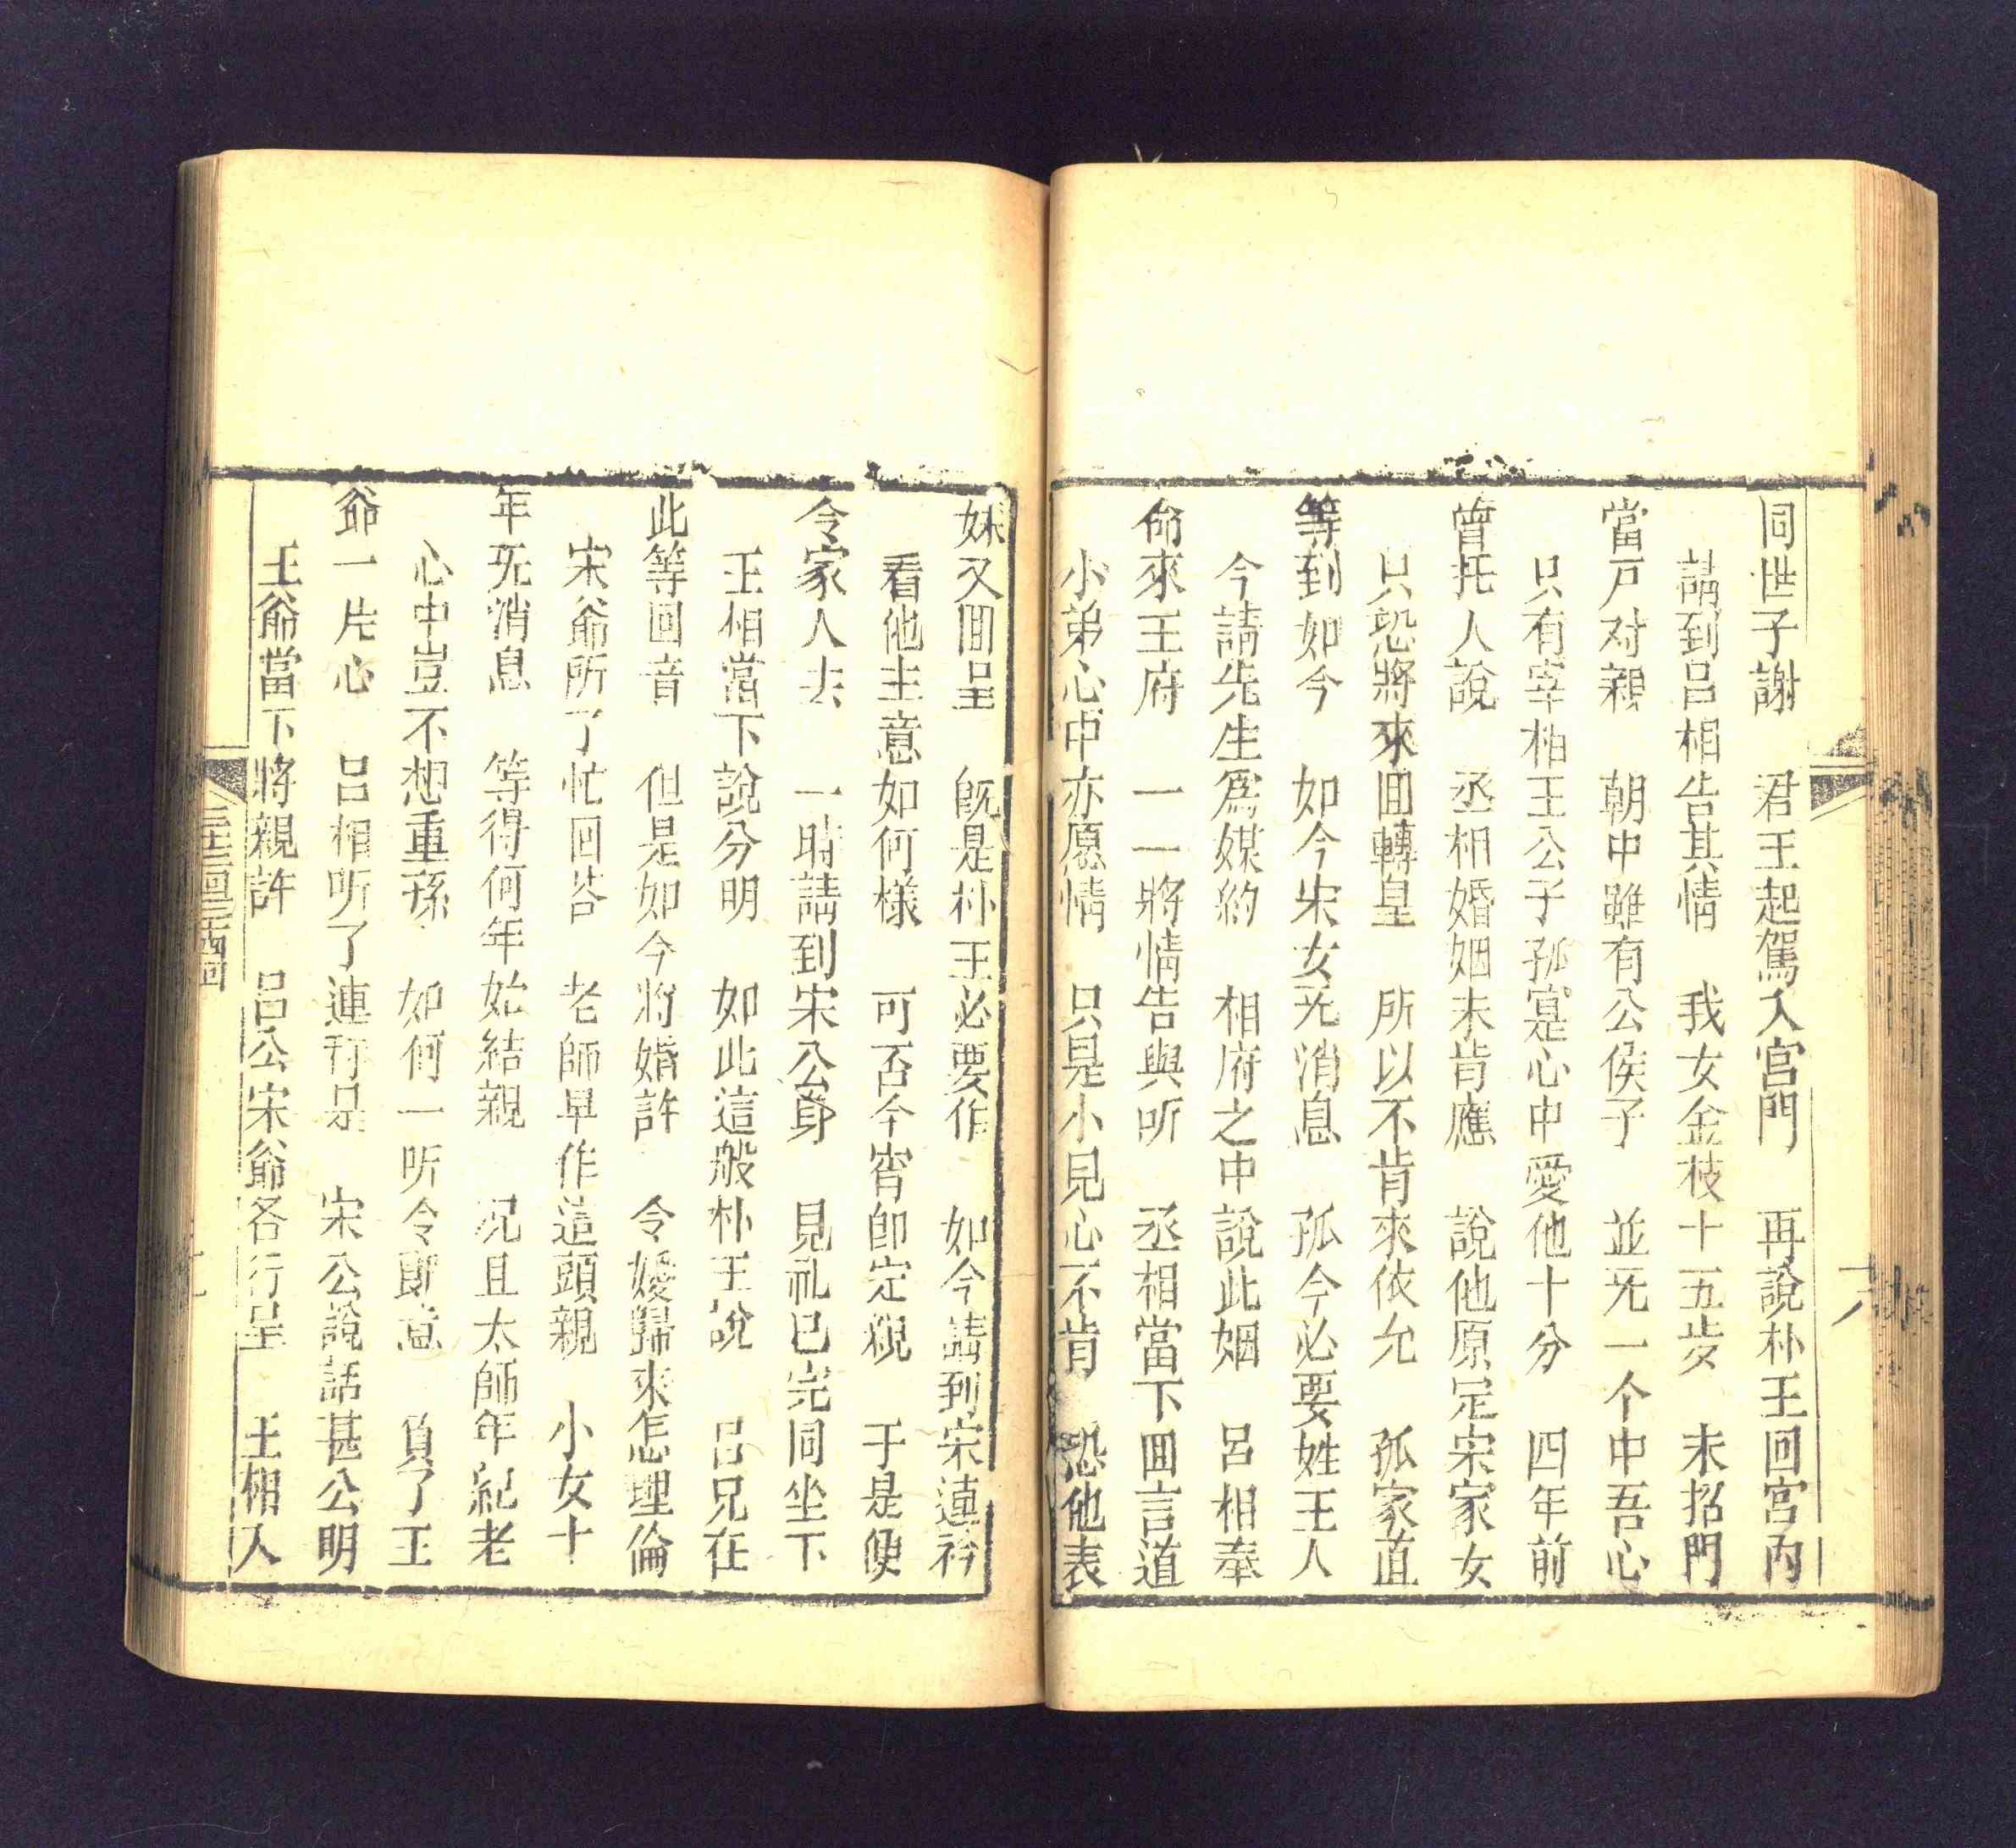 同世子謝　君王起駕入宮門　再說朴王回宮內
請到呂相告其情　我女金枝十五岁　未招門
當戸对親　朝中雖有公侯子　並无一个中吾心
只有宰相王公子孤寔心中愛他十分　四年前
曾托人說　丞相婚姻未肯應　說他原定宋家女
只恐將來囬轉皇　所以不肯來依允　孤家直
等到如今　如今宋女无消息　孤今必要姓王人
今請先生爲媒約　相府之中說此姻　呂相奉
命來王府　一一將情告與听　丞相當下囬言道
小弟心中亦愿情　只是小見心不肯　恐他表
妹又囬呈　旣是朴王必要作　如今請到宋連衿
看他主意如何樣　可否今宵卽定親　于是便
令家人去　一時請到宋公身　見礼已完同坐下
王相當下說分明　如此這般朴王說　呂兄在
此等回音　但是如今將婚許　令嫒歸來怎理倫
宋爺所了忙回荅　老師早作這頭親　小女十
年无消息　等得何年始結親　况且太師年紀老
心中豈不想重孫　如何一听令郎意　負了王
爺一片心　呂相听了連称是　宋公說話甚公明
王爺當下將親許　呂公宋爺各行呈　王相入